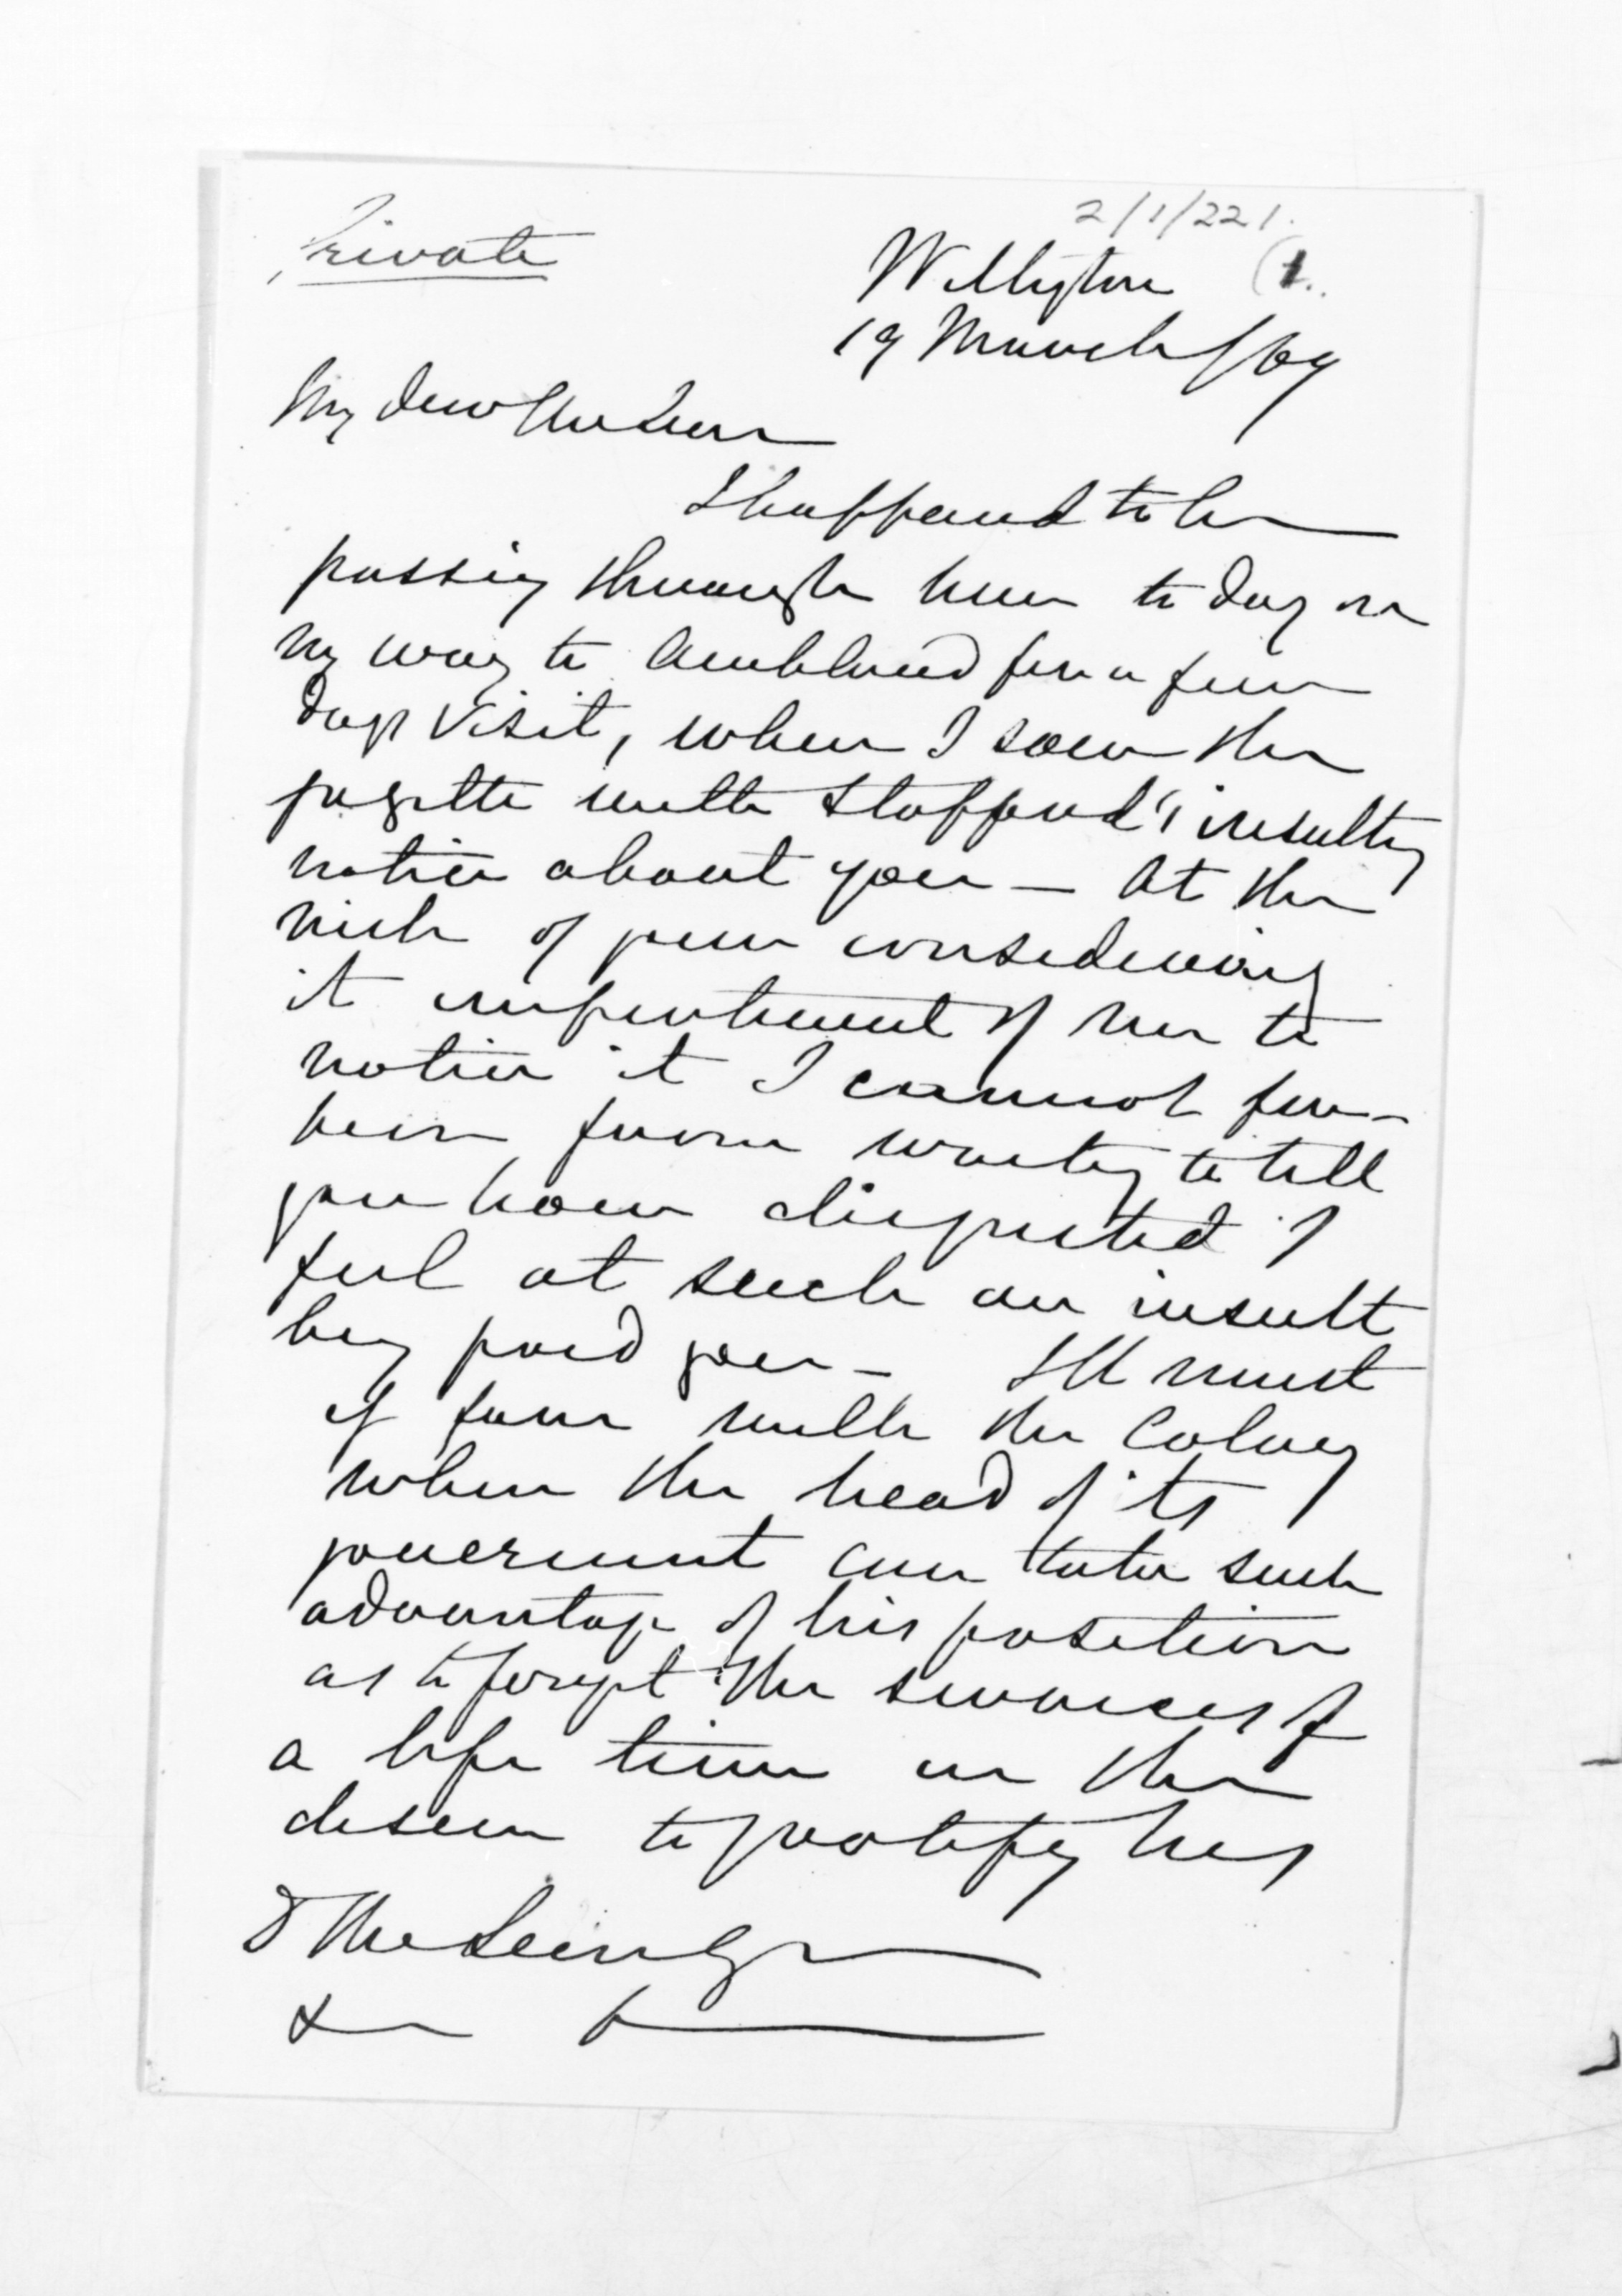 2/1/221.
Private
Wellington (1.
19 March /69
My dear McLean
I happened to be
passing through here to day on
my way to Auckland for a few
days visit, when I saw the
gazette with Stafford's insulting
notice about you — At the
risk of your considering
it impertinent of me to
notice it I cannot for-
bear from writing to tell
you how disgusted I
feel at such an insult
being paid you — Ill must
it fare with the Colony
when the head of its
government can take such
advantage of his position
as to forget the services of
a life time in the
desire to gratify his
D McLean Esqr